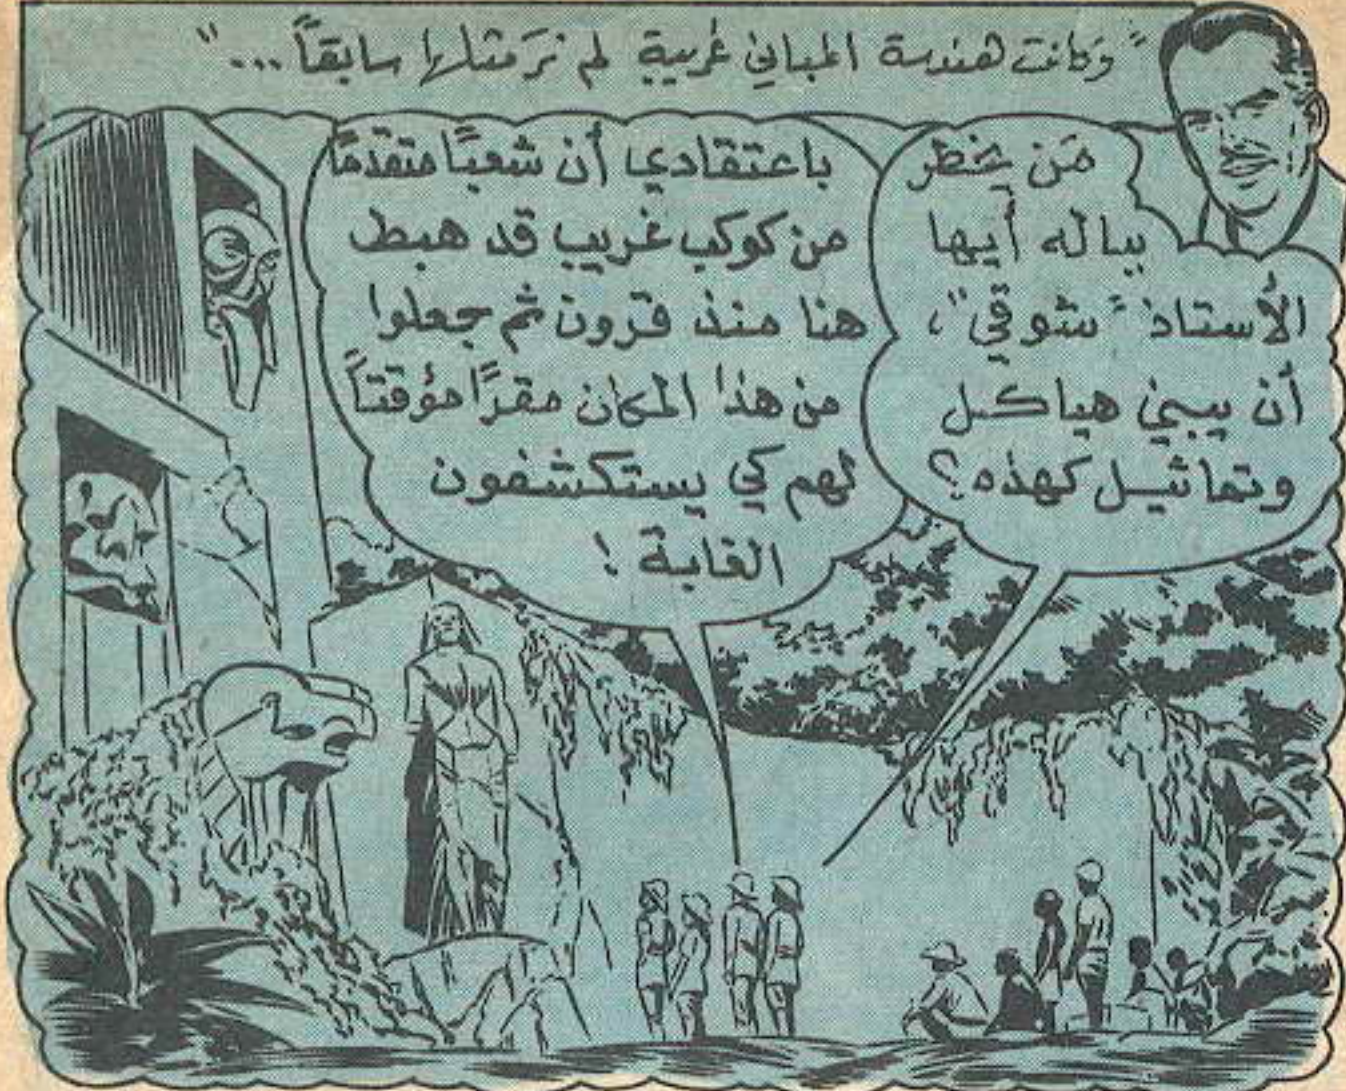 "وَكانت هندسة المباني غريبة لم نرَ مثلها سابقاً..."
مَن يخطر
بباله أيها
الأستاذ "شوقي"،
أن يبني هياكل
وتماثيل كهذه؟
باعتقادي أن شعبًا متقدمًا
من كوكب غريب قد هبط
هنا منذ قرون ثم جعلوا
من هذا المكان مقرًا مؤقتاً
لهم كي يستكشفون
الغابة!